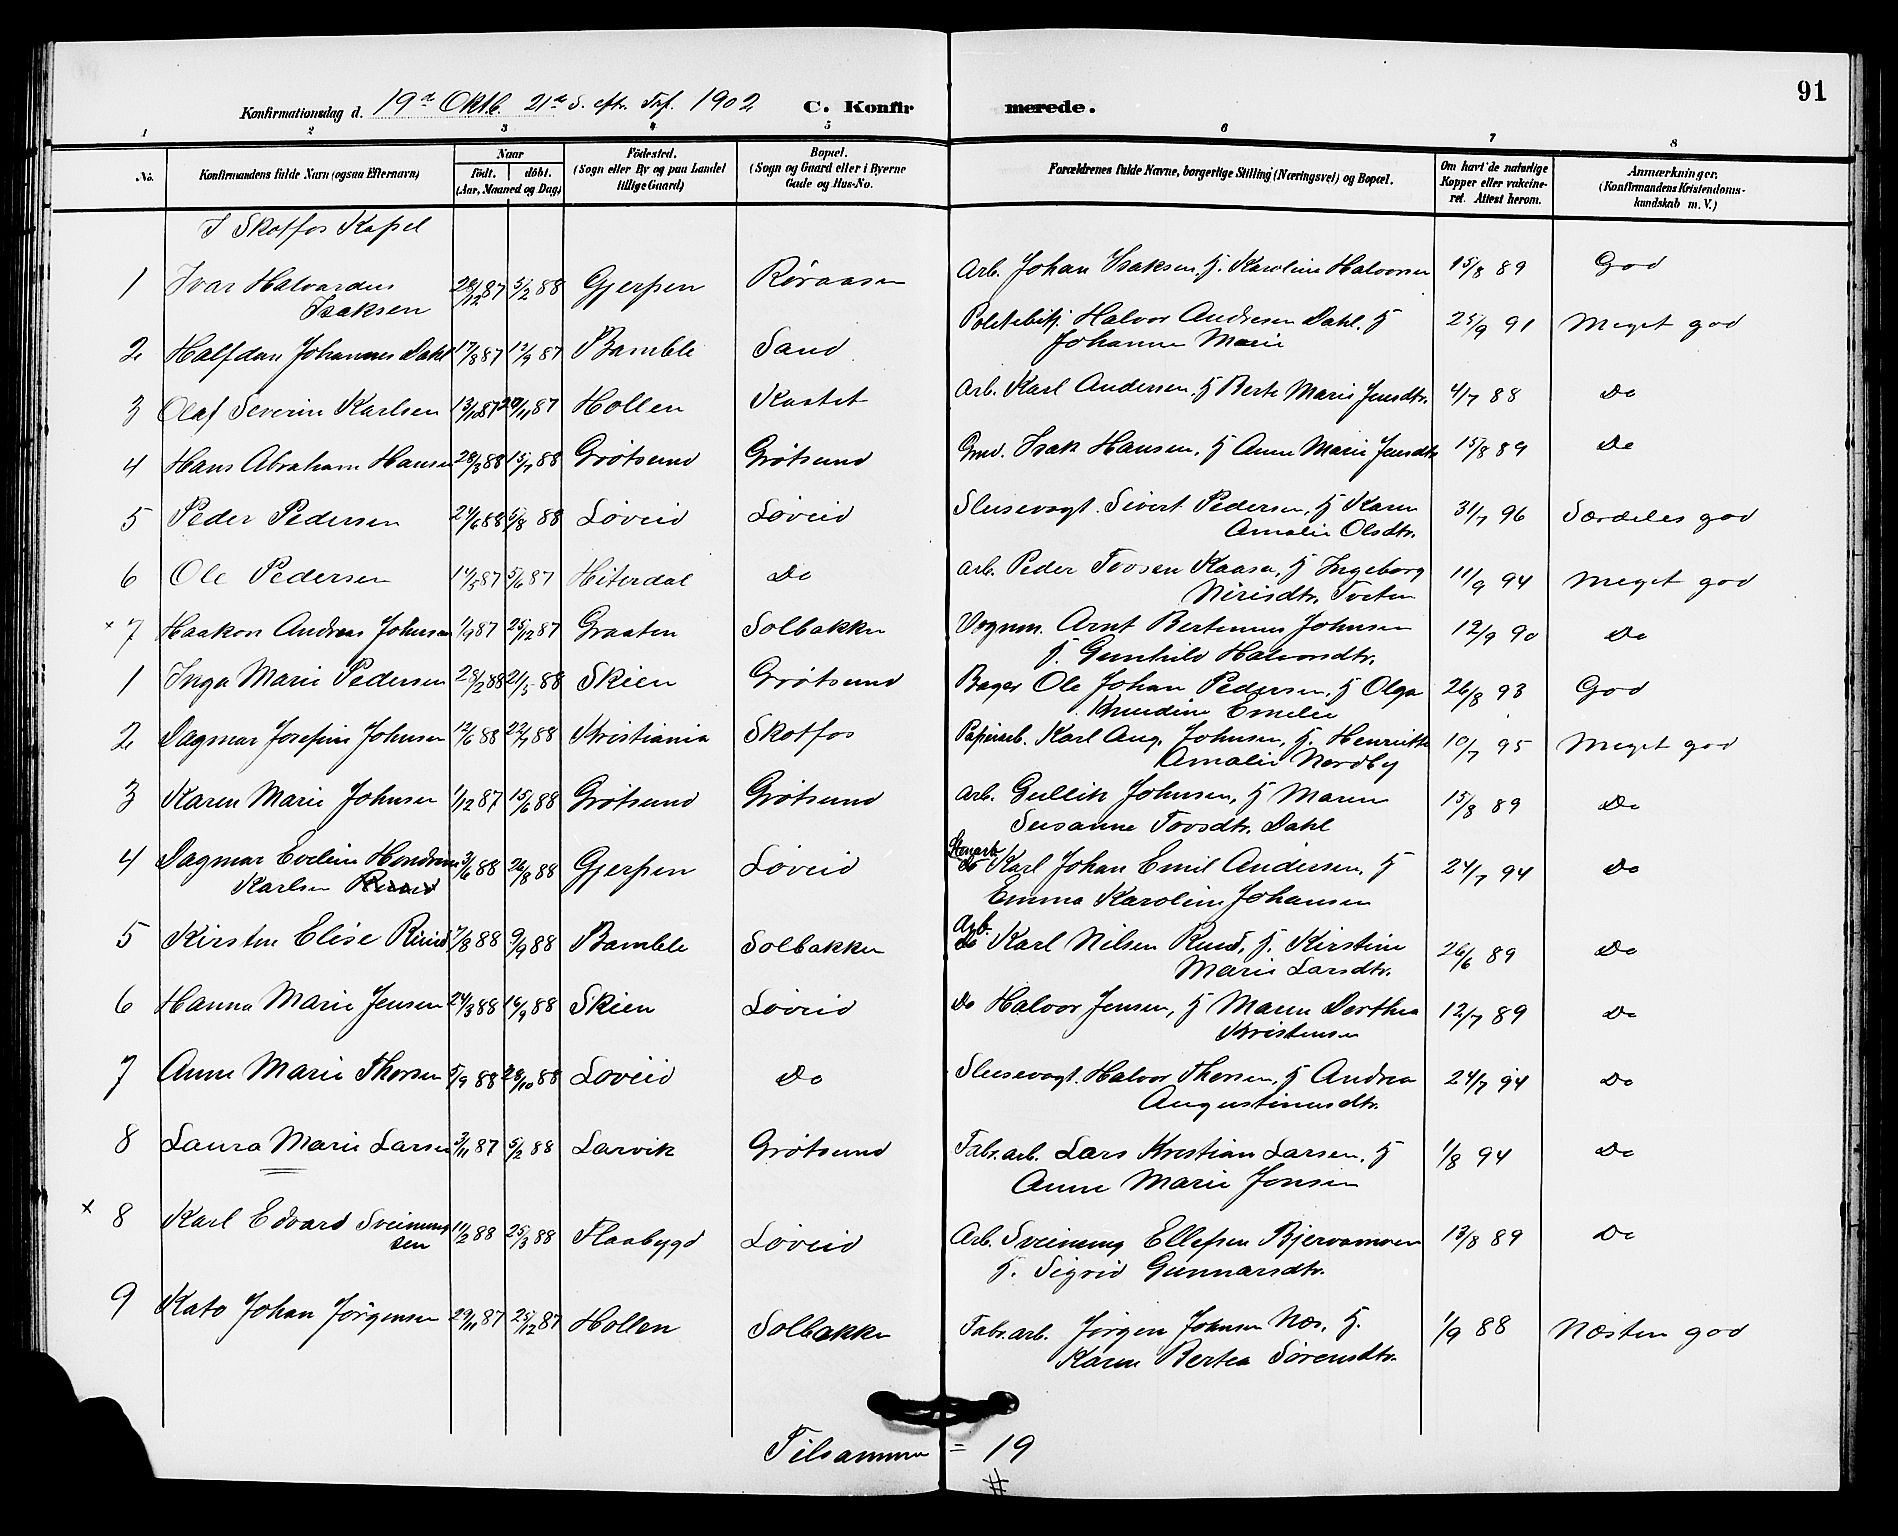 91
Konfirmationsdag d. 19de Oktb. 21de S. eftr. Tref. 1902 C. Konfirmerede.
1 2 3 4 5 6 7 8
No. Konfirmandens fulde Navn (ogsaa Efternavn) Naar födt. döbt. (Aar, Maaned og Dag) Födested. (Sogn eller By og paa Landet tillige Gaard) Bopæl. (Sogn og Gaard eller i Byerne Gade og Hus-No. Forældrenes fulde Navne, borgerlige Stilling (Næringsvei) og Bopæl. Om havt de naturlige Kopper eller vaksineret. Attest herom. Anmærkninger. (Konfirmandens Kristendomskundskab m. V.)
I Skotfos Kapel
1 Ivar Halvardus Isaksen 5/2 88 Gjerpen Röraasen Arb. Johan Isaksen, H. Karoline Halvorsen 15/8 89 God
2 Halfdan Johannes Dahl 17/8 87 Bamble Sand Politibtj. Halvor Andresen Dahl, H Johanne Marie 25/9 91 Meget god
3 Olaf Severin Karlsen Hollen Kastet Arb. Karl Andersen, H Berte Marie Jensdtr. 4/7 88 Do
4 Hans Abraham Hansen 28/3 88 15/7 88 Grötsund Grötsund Gmd. Isak Hansen, H Anne Marie Jensdtr 15/8 89 Do
5 Peder Pedersen 24/6 88 5/8 88 Löveid Löveid Slusevagt. Sivert Pedersen, H Karen Amalie Olsdtr. 31/7 96 Særdeles god
6 Ole Pedersen 5/6 87 Hiterdal Do Arb. Peder Tovsen Kaasa, H Ingeborg Nirisdtr. Tveten 11/9 94 Meget god
x 7 Haakon Andreas Johnsen 1/9 87 25/12 87 Graaten Solbakken Vognm. Arnt Bertinius Johnsen H. Gunhild Halvorsdtr. 12/9 90 Do
1 Inga Marie Pedersen 28/2 88 21/5 88 Skien Grötsund Bager Ole Johan Pedersen, H Olga Knudine Emelie 26/8 93 God
2 Dagmar Josefine Johnsen 12/6 88 22/7 88 Kristiania Skotfos Papirarb. Karl Aug. Johnsen, H. Henriette Amalie Nordby 10/7 95 Meget god
3 Karen Marie Johnsen 1/12 87 15/6 88 Grötsund Grötsund Arb. Gullik Johnsen, H Maren Susanne Tovsdtr. Dahl 15/8 89 Do
4 Dagmar Eveline Karlsen 3/6 88 26/8 88 Gjerpen Löveid Stenarb. Karl Johan Emil Andersen, H Emma Karoline Johansen 24/7 94 Do
5 Kirsten Elise 7/8 88 9/9 88 Bamble Solbakken Arb. Karl Nilsen Ruud, H. Kirstine Marie Larsdtr. 26/6 89 Do
6 Hanna Marie Jensen 24/3 88 16/9 88 Skien Löveid Do Halvor Jensen, H Maren Dorthea Kristensen 12/7 89 Do
7 Anne Marie Thorsen 5/9 88 28/10 88 Löveid Do Slusevagt. Halvor Thorsen, H Andrea Augustinusdtr. 24/7 94 Do
8 Laura Marie Larsen 3/11 87 5/2 88 Larvik Grötsund Fabr. arb. Lars Kristian Larsen, H Anne Marie Jonsen 1/8 94 Do
x 8 Karl Edvard Sveinungsen 11/2 88 25/3 88 Flaabygd Löveid Arb. Sveinung Ellefsen Bjervamoen H. Sigrid Gunnarsdtr. 13/8 89 Do
9 Kato Johan Jörgensen 29/11 87 25/12 87 Hollen Solbakken Fabr. arb. Jörgen Johnsen Næs, H. Karen Bertea Sörensdtr. 1/9 88 Næsten god
Tilsammen = 19
#